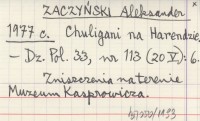 ZACZYŃSKI Aleksander
1977 c. Chuligani na Harendzie.
– Dz. Pol. 33, nr 113 (20 V): 6.
Zniszczenia na terenie
Muzeum Kasprowicza.